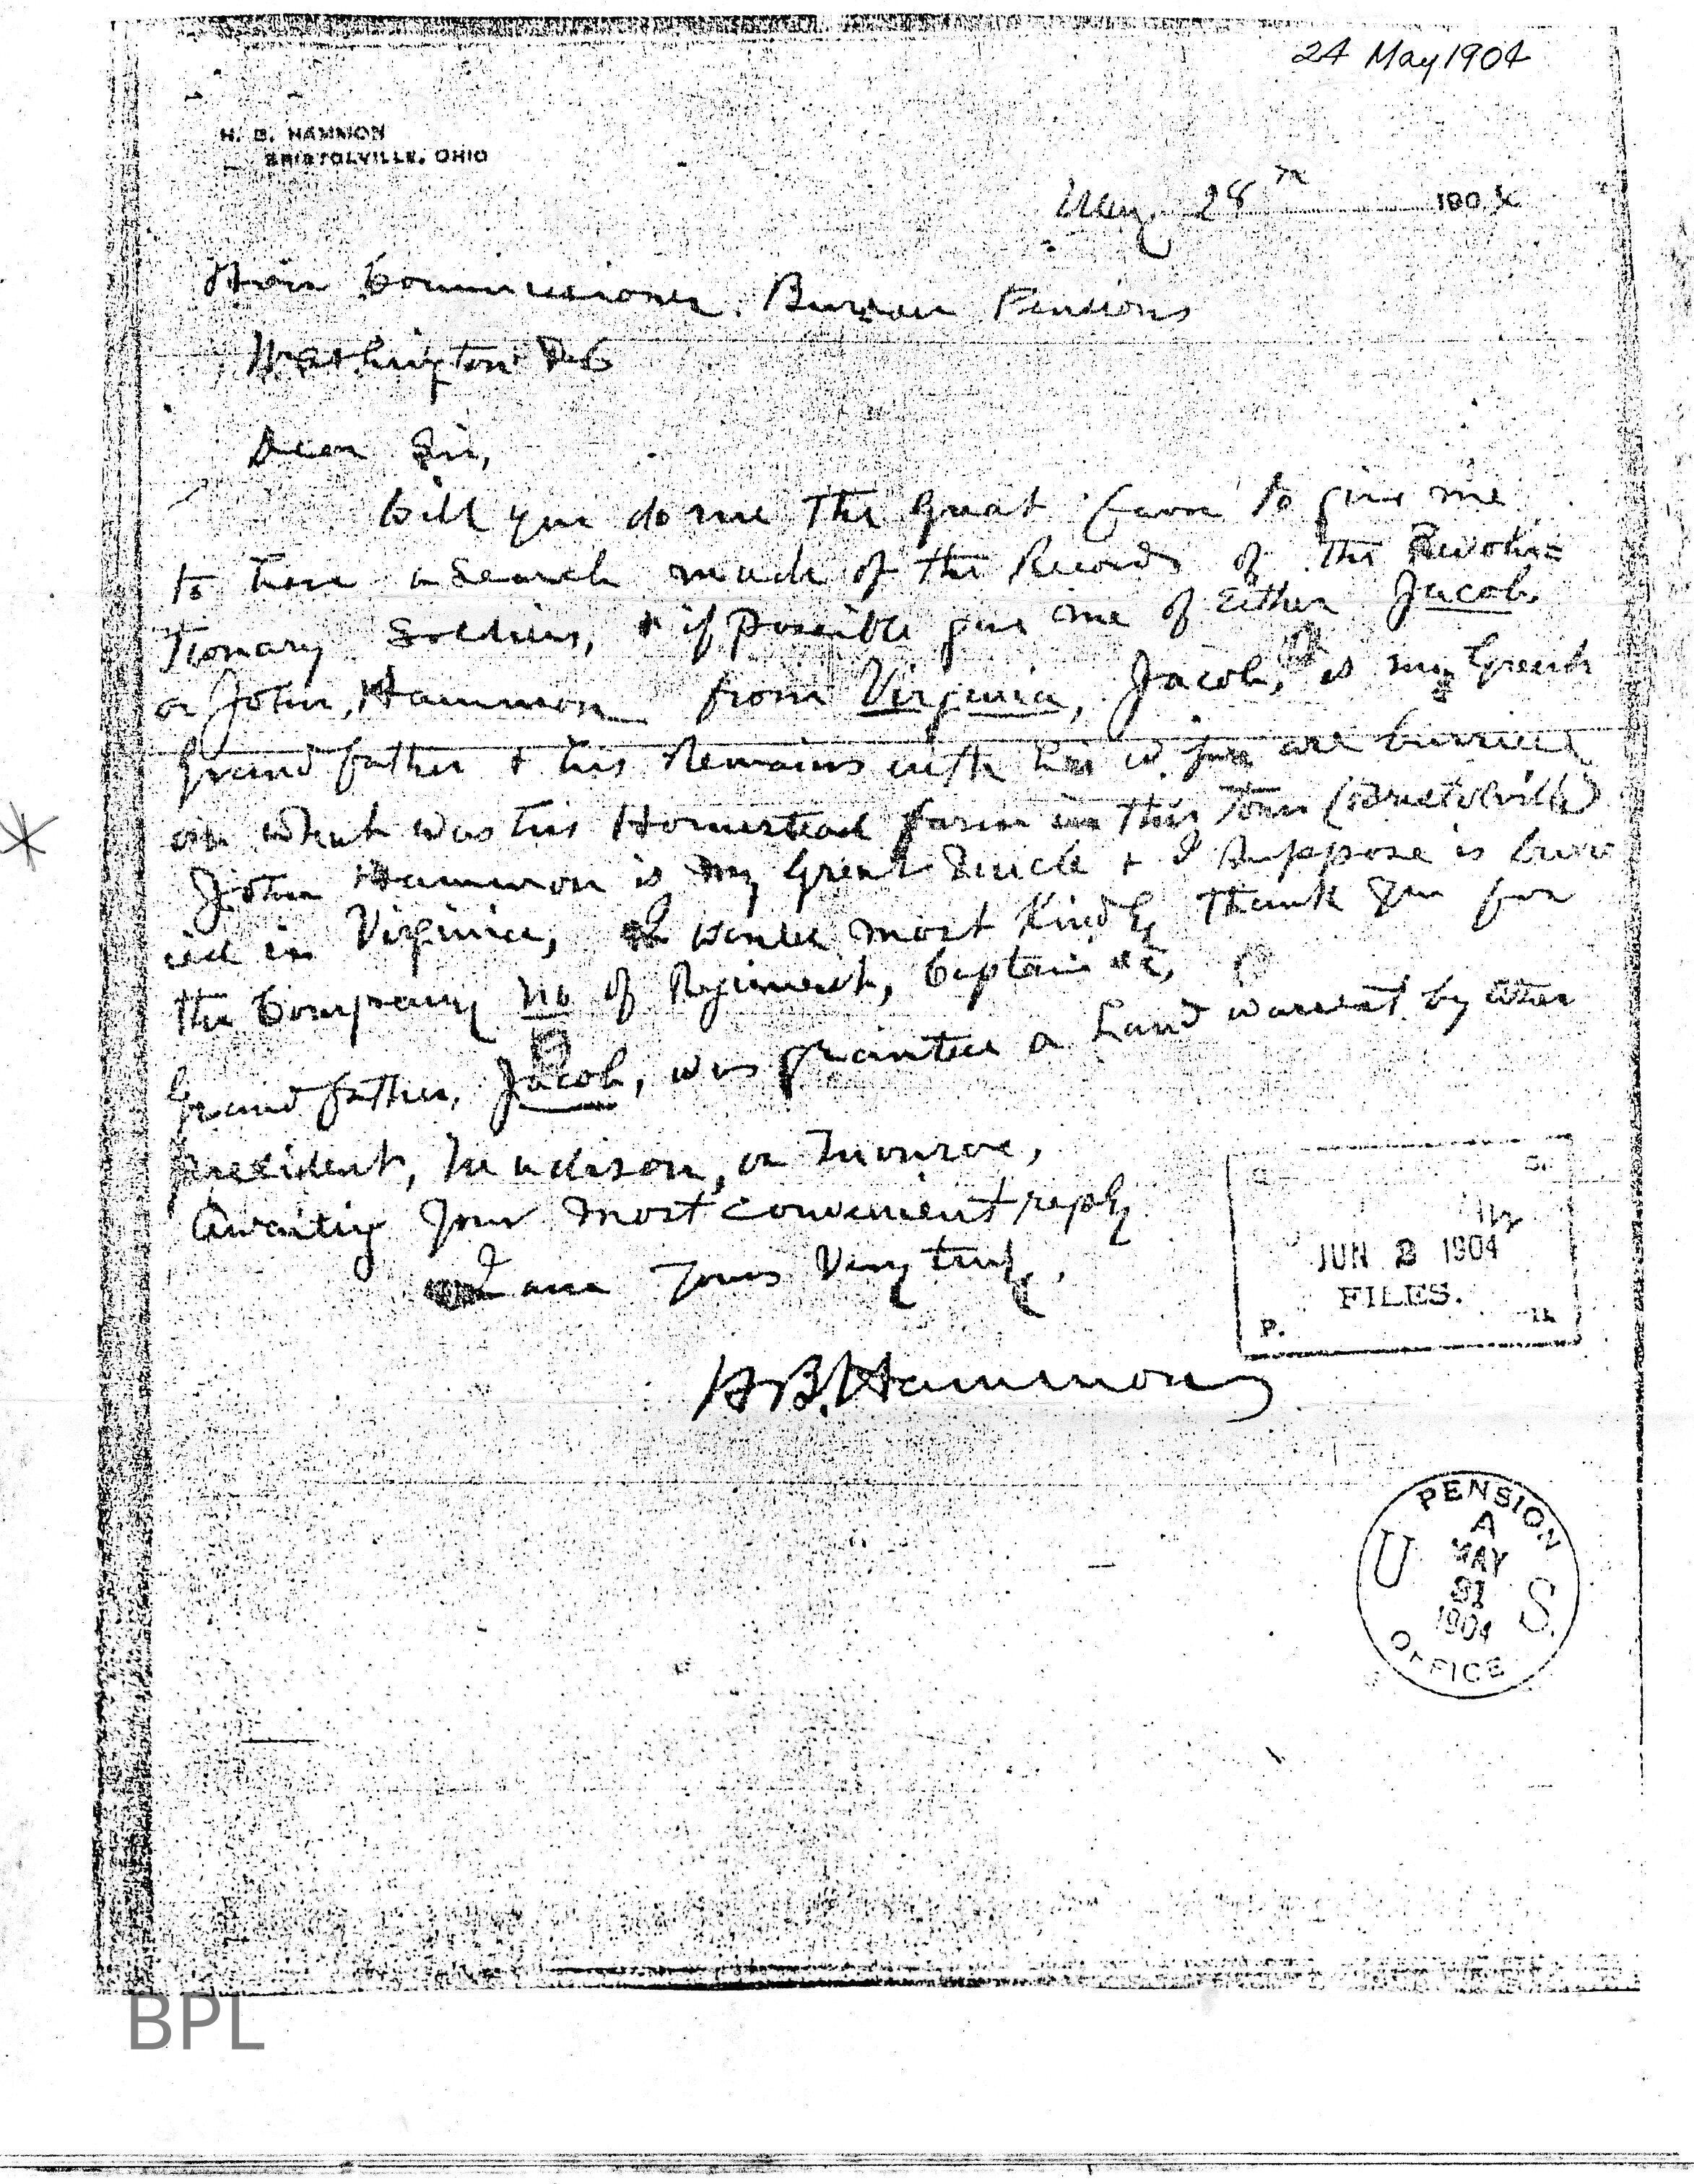 24 May 1904
H. B. HAMMON
BRISTOLVILLE, OHIO
May 28 th 1904
Hon Commissioner. Bureau Pensions
Washington D.C
Dear Sir,
Will you do me the great favor to give me
to have a search made of the Records of the Revolu=
tionary Soldiers, & if possible give me of Either Jacob,
or John, Hammon from Virginia, Jacob, is my Great
Grand father & his Remains with his wife are burried
on what was his Homestead farm in this Town (Bristolville)
John Hammon is my Great Uncle & I suppose is burr
ied in Virginia, I would most kindly thank you for
the Company no of Regiment, Captain &c,
Grand father, Jacob, was granted a Land warrent by either
president, Madison, or Monroe,
Awaiting your most convenient reply
I am yours Very truly,
H B. Hammon
JUN 2 1904
FILES.
P.
PENSION
A
U S.
MAY
31
1904
OFFICE
BPL